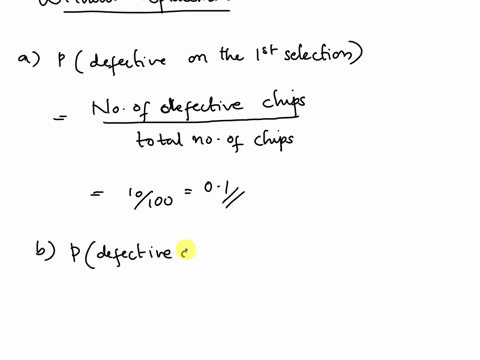 a) P ( defective on the 1st selection)
= No. of defective chips
total no. of chips
= 10/100 = 0.1//
b) P (defective